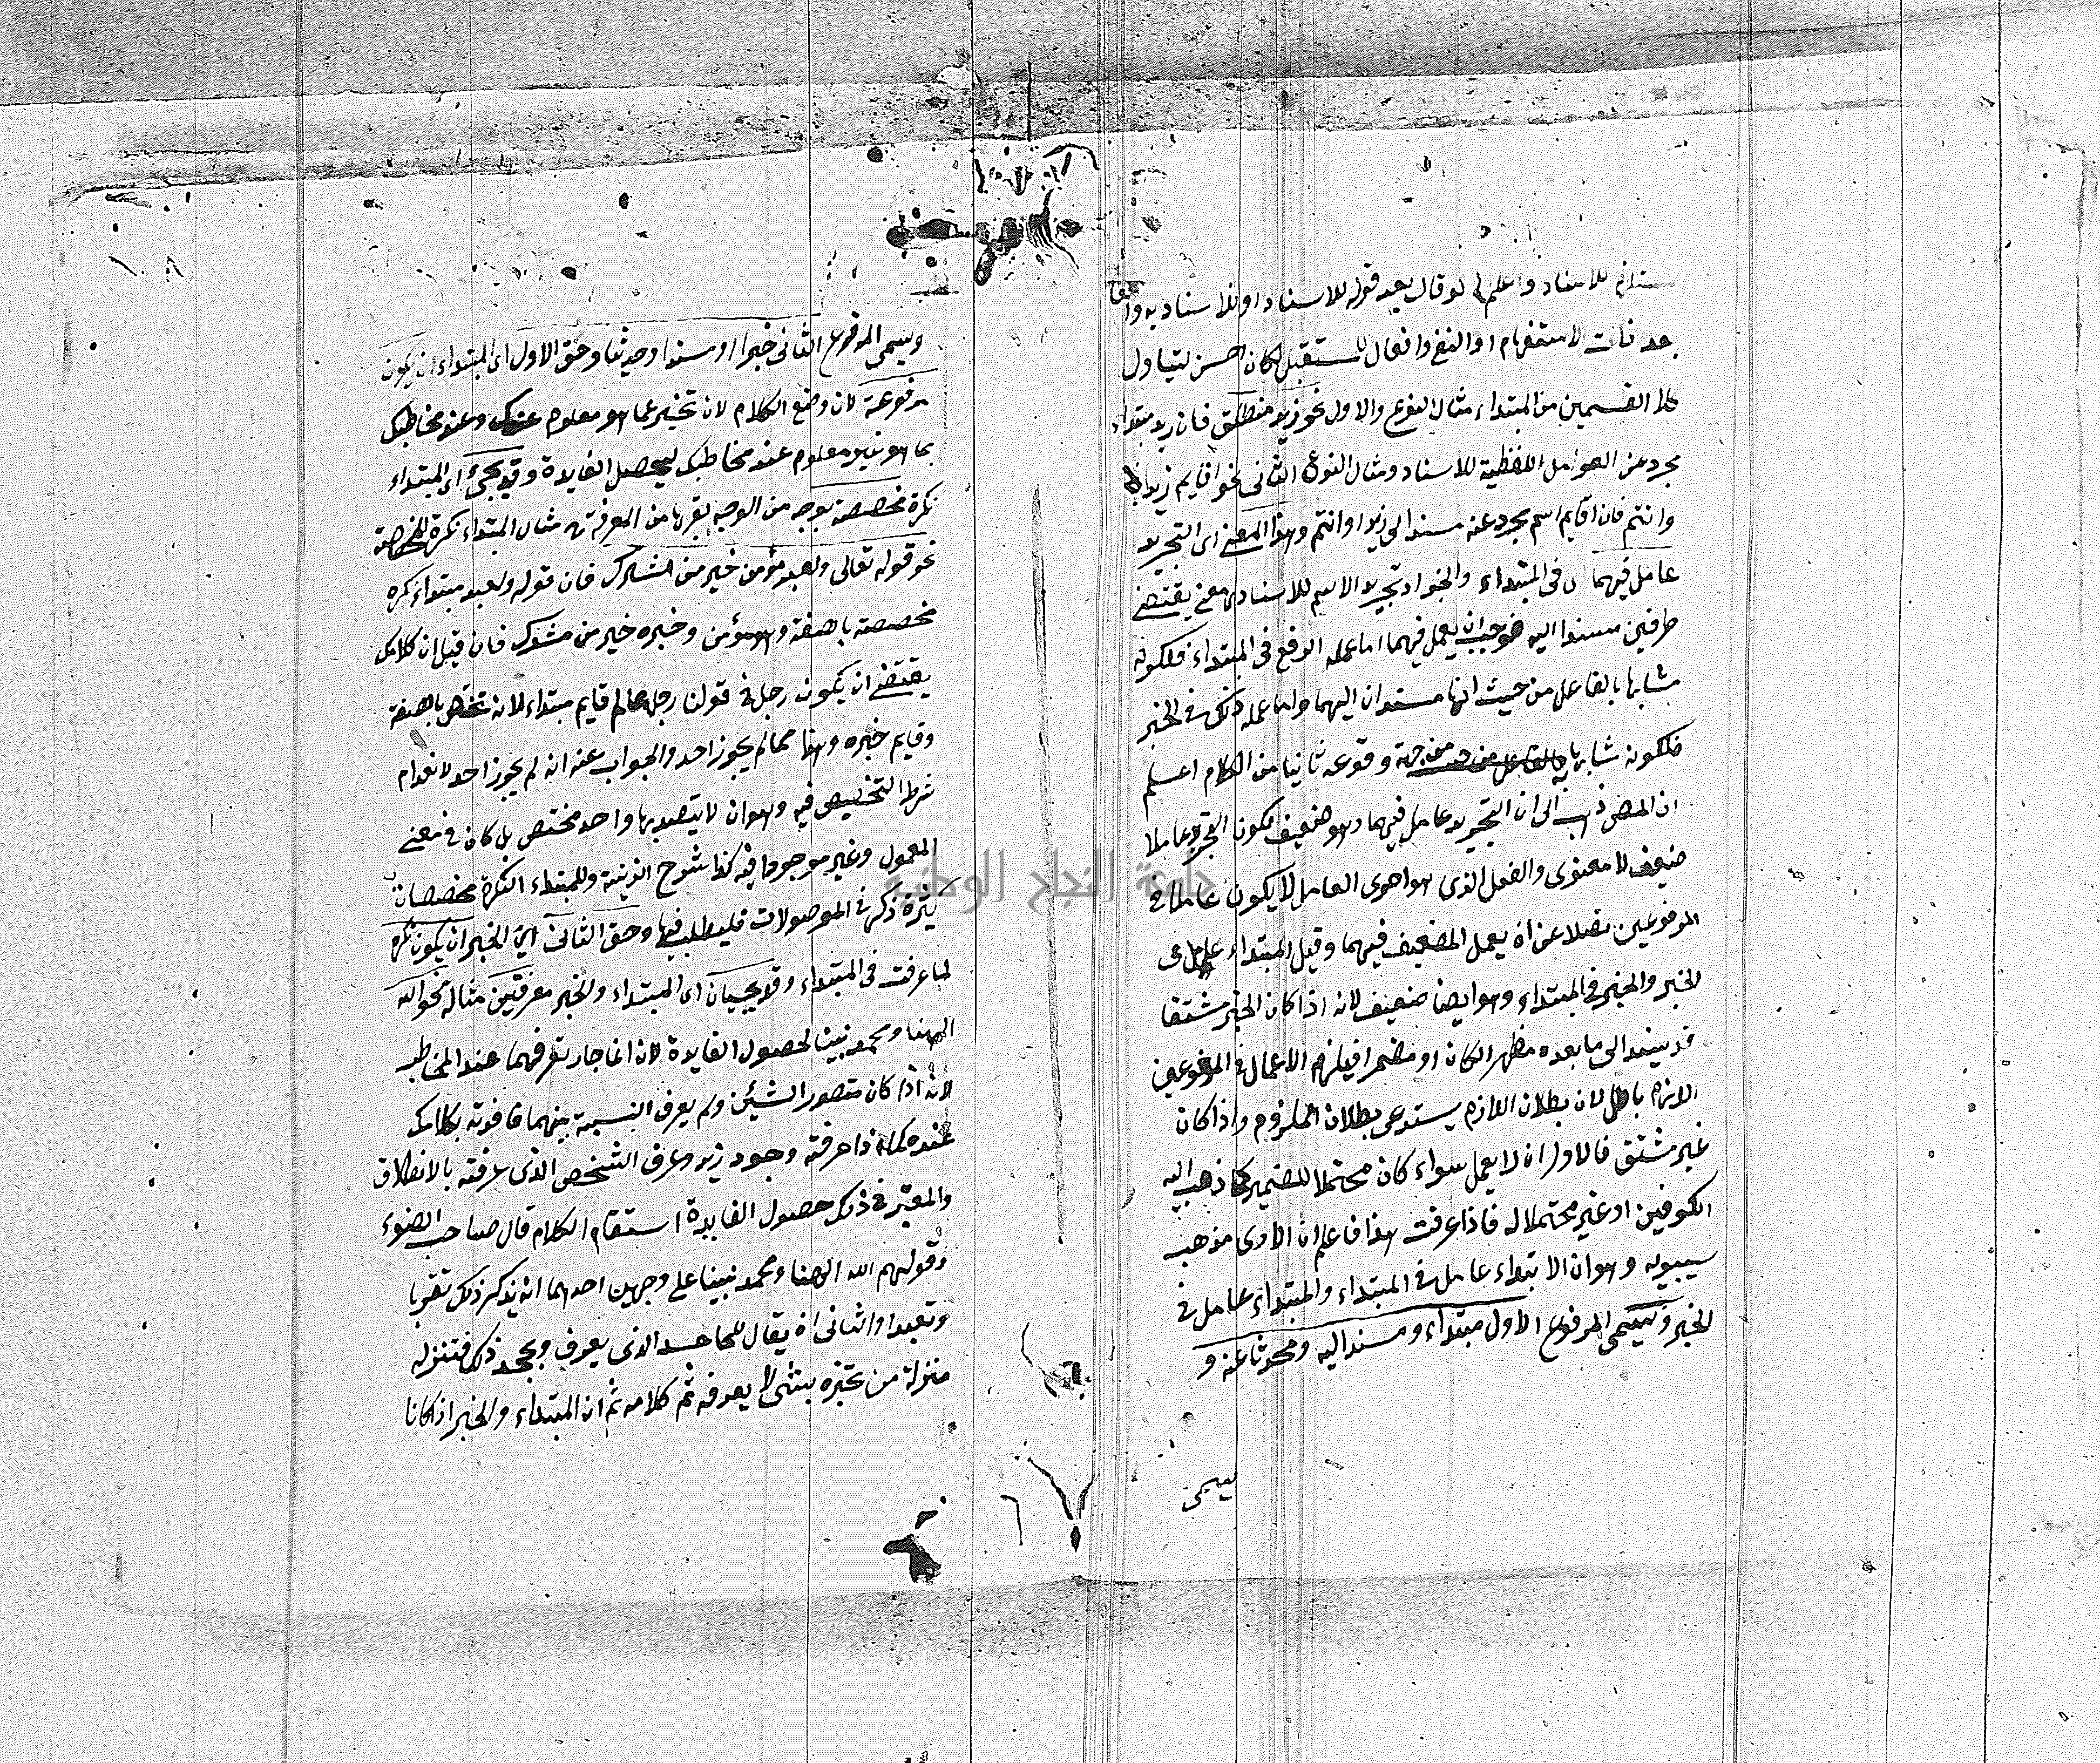 للاسناد واعلم لو قال بعد قوله للاسناد او للاسناد به واقعا
بعد الاستفهام او النفي وافعال للمستقبل لكان احسن لتناول
كلا القسمين من المبتداء مثال النوع والاول نحو زيد منطلق فان زيد مبتداء
مجرد عن العوامل اللفظية للاسناد ومثال النوع الثاني نحو اقايم زيد
وانتم فان اقايم اسم مجرد عنه مسند الى زيد او انتم وهذا المعنى اى التجريد
عامل فيهما اى فى المبتداء والخبر اذ تجريد الاسم للاسناد معنى يقتضى
طرفين مسندا اليه فوجب ان يعمل فيهما اما عمله الرفع فى المبتداء فلكونه
مشابها بالفاعل من حيث انها مسندان اليهما واما عمله ذلك فى الخبر
فلكونه مشابها بالفاعل من جهة وقوعه ثانيا من الكلام اعلم
ان المص ذهب الى ان التجريد عامل فيهما وهو ضعيف لكون التجريد عاملا
ضعيفا لا معنوى والفعل الذى هو اقوى العامل لا يكون عاملا فى
المرفوعين فضلا عن ان يعمل الضعيف فيهما وقيل المبتداء عامل فى
الخبر والخبر فى المبتداء وهو ايضا ضعيف لانه اذا كان الخبر مشتقا
قد يسند الى ما بعده مظهرا كان او مضمرا فيلزم الاعمال فى المرفوعين
اللازم باطل لان بطلان اللازم يستدعى بطلان الملزوم واذا كان
غير مشتق فالاولى ان لا يعمل سواء كان محتملا للضمير كما ذهب اليه
الكوفيين او غير محتملا له فاذا عرفت هذا فاعلم ان الاولى مذهب
سيبويه وهو ان الابتداء عامل فى المبتداء والمبتداء عامل فى
الخبر ويسمى المرفوع الاول مبتداء ومسندا اليه ومحدثا عنه و
يسمى
ويسمى المرفوع الثانى خبرا ومسندا وحديثا وحق الاول اى المبتداء ان يكون
معرفة لان وضع الكلام لان تخبر عما هو معلوم عندك وعند مخاطبك
بما هو غير معلوم عند مخاطبك ليحصل الفايدة وقد يجئ اى المبتداء
نكرة مخصصة بوجه من الوجوه بقربها من المعرفة مثال المبتداء نكرة المخصصة
نحو قوله تعالى ولعبد مؤمن خير من مشرك فان قوله ولعبد مبتداء نكرة
مخصصة بالصفة وهو مؤمن وخبره خير من مشرك فان قيل ان كلامك
يقتضى ان يكون رجل فى قولنا رجل عالم قايم مبتداء لانه تخصص بالصفة
وقايم خبره وهذا مما لم يجوز احد والجواب عنه انه لم يجوز احد لانعدام
شرط التخصيص فيه وهو ان لا يقصد بها واحد مختص بل كان فى معنى
العموم وغير موجودا فيه كذا شرح اللمبتداء النكرة مخصصات
كثيرة ذكر فى الموصولات فليطلب فيها وحق الثانى اى الخبر ان يكون نكرة
لما عرفت فى المبتداء وقد يجيبان اى المبتداء والخبر معرفتين مثاله نحو الله
الهنا ومحمد نبينا لحصول الفايدة لان انما جاز تعرفهما عند المخاطب
لانه اذا كان متصور الشيئين ولم يعرف النسبة بينهما فافدته بكلامك
عنده كما اذا عرفته وجود زيد وعرف الشخص الذى عرفته بالانطلاق
والمعتبر فى ذلك حصول الفايدة استقام الكلام قال صاحب الضوء
وقولهم الله الهنا ومحمد نبينا على وجهين احدهما انه يذكر ذلك تقربا
وتعبدا والثانى ان يقال للجاحد الذى يعرف ويجحد ذلك فتنزله
منزلة من تخبره بشئ لا يعرفه ثم كلامه ثم ان المبتداء والخبر اذا كانا
جامعة النجاح الوطنية